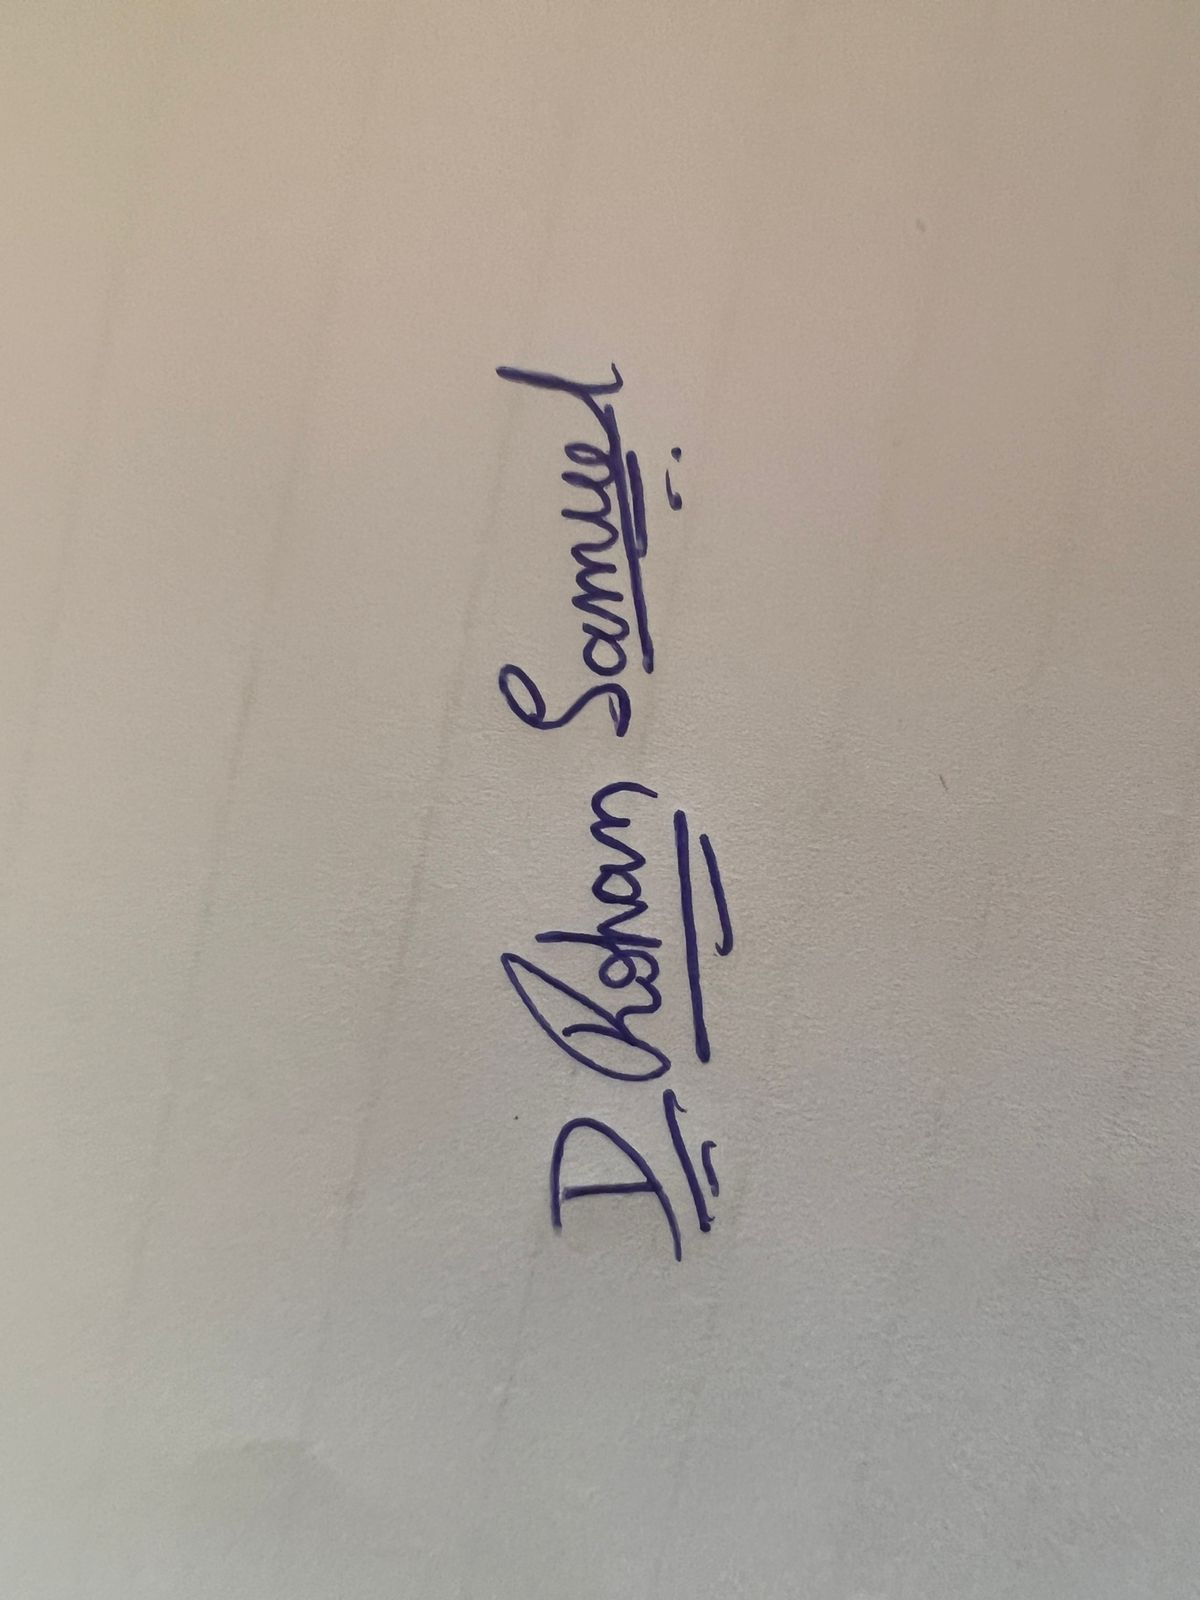 D Rohan Samuel